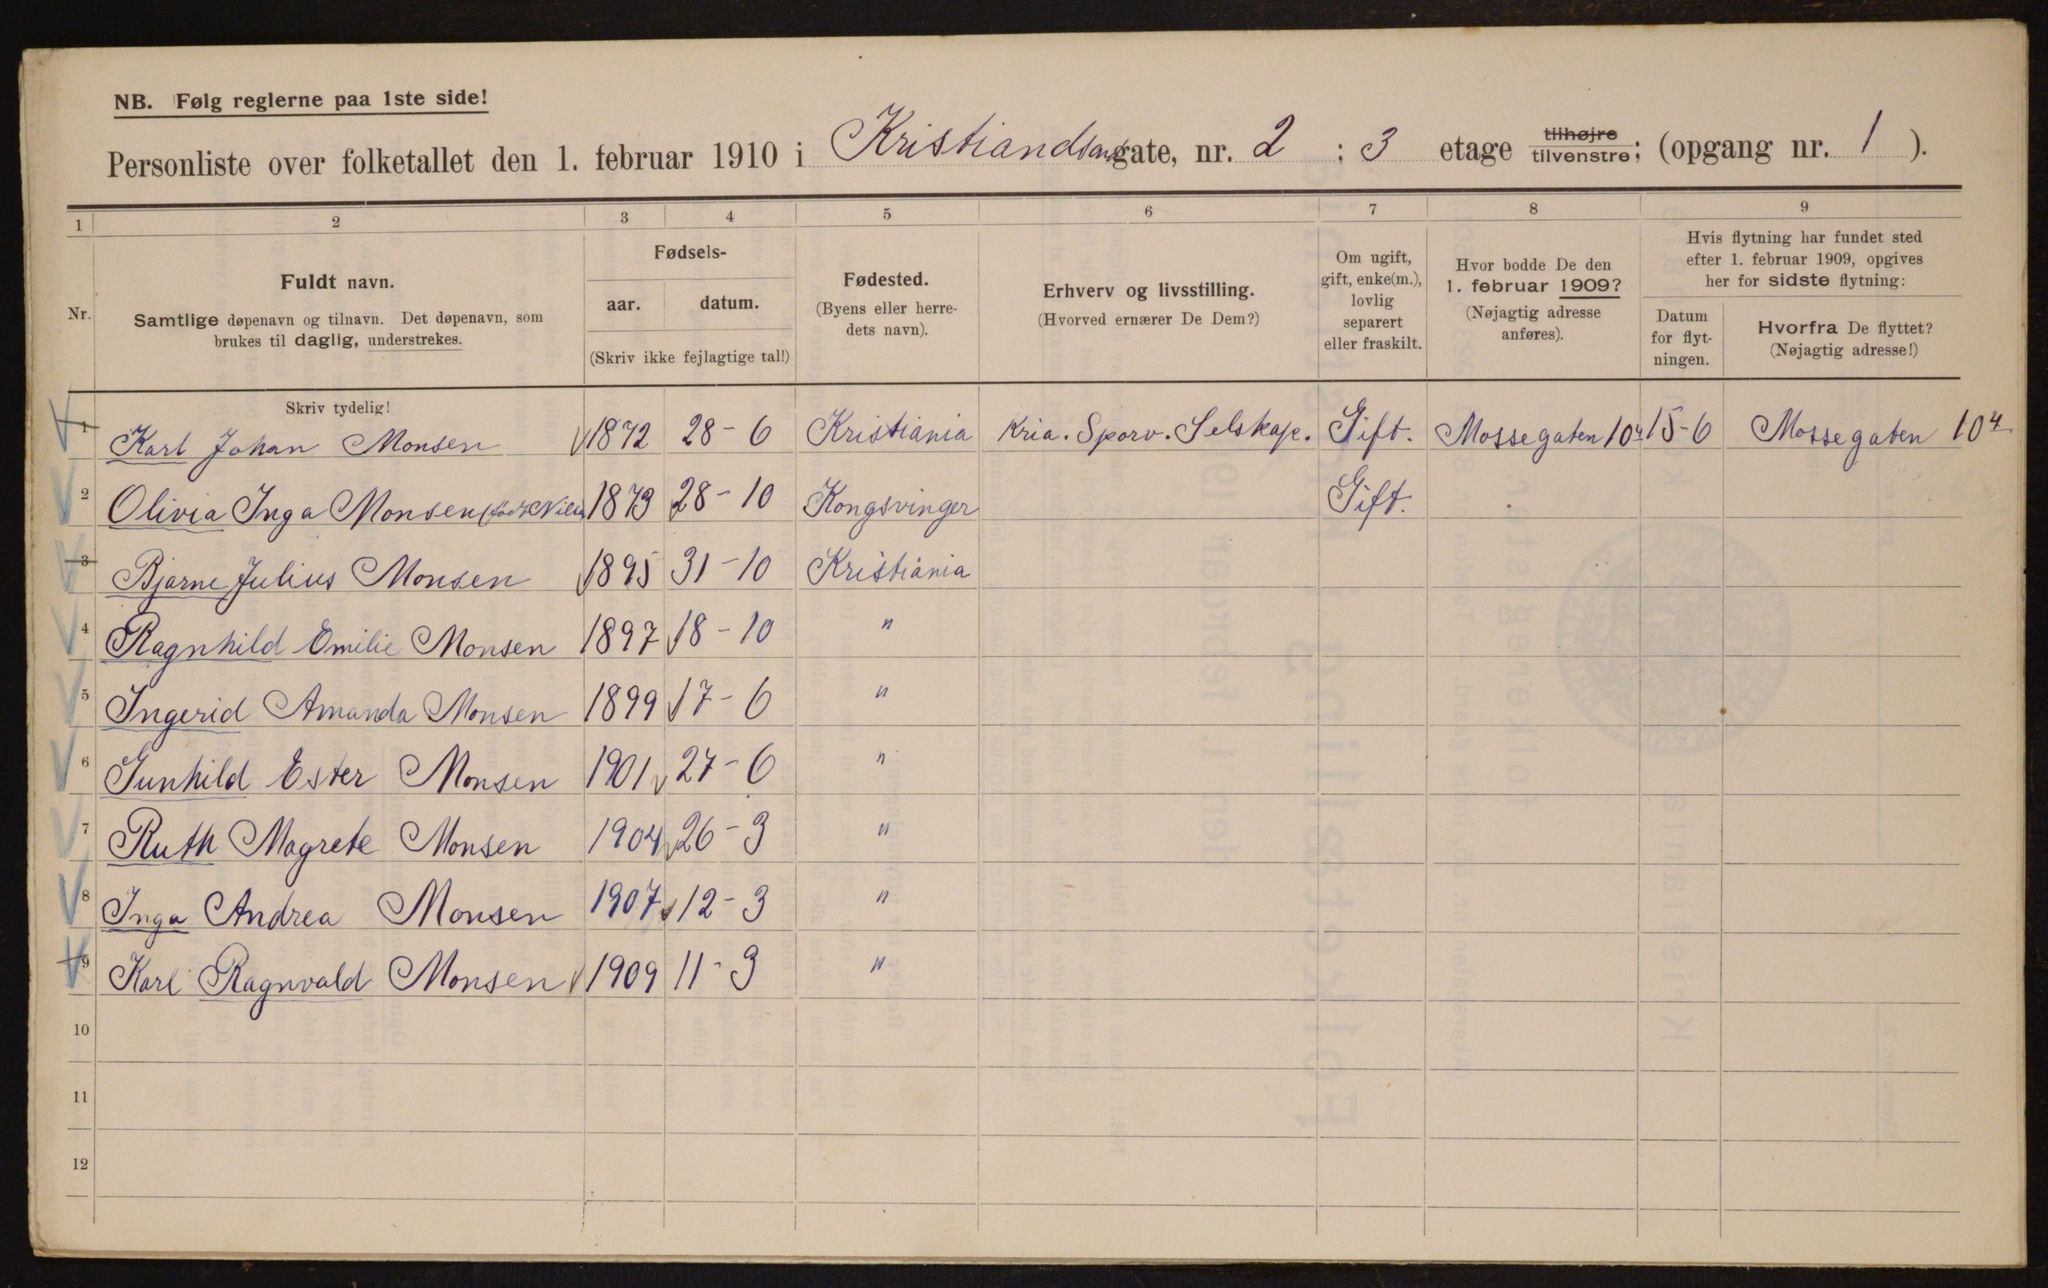 NB. Følg reglerne paa 1ste side!
Personliste over folketallet den 1. februar 1910 i Kristiandsandgate, nr. 2 ; 3 etage tilhøjre tilvenstre; (opgang nr. 1 ).
1 2 3 4 5 6 7 8 9
Nr.
Fuldt navn.
Samtlige døpenavn og tilnavn. Det døpenavn, som
brukes til daglig, understrekes.
Skriv tydelig!
Fødsels-
aar. datum.
(Skriv ikke fejlagtige tal!)
Fødested.
(Byens eller herre-
dets navn).
Erhverv og livsstilling.
(Hvorved ernærer De Dem?)
Om ugift,
gift, enke(m.),
lovlig
separert
eller fraskilt.
Hvor bodde De den
1. februar 1909?
(Nøjagtig adresse
anføres).
Hvis flytning har fundet sted
efter 1. februar 1909, opgives
her for sidste flytning:
Datum
for flyt-
ningen.
Hvorfra De flyttet?
(Nøjagtig adresse!)
1 Karl Johan Monsen 1872 28-6 Kristiania Kria. Sporv. Selskap. Gift. Mossegaten 10⁴ 15-6 Mossegaten 10⁴
2 Olivia Inga Monsen 1873 28-10 Kongsvinger Gift.
3 Bjarne Julius Monsen 1895 31-10 Kristiania
4 Ragnhild Emilie Monsen 1897 18-10 "
5 Ingerid Amanda Monsen 1899 17-6 "
6 Gunhild Ester Monsen 1901 27-6 "
7 Ruth Magrete Monsen 1904 26-3 "
8 Inga Andrea Monsen 1907 12-3 "
9 Karl Ragnvald Monsen 1909 11-3 "
10
11
12